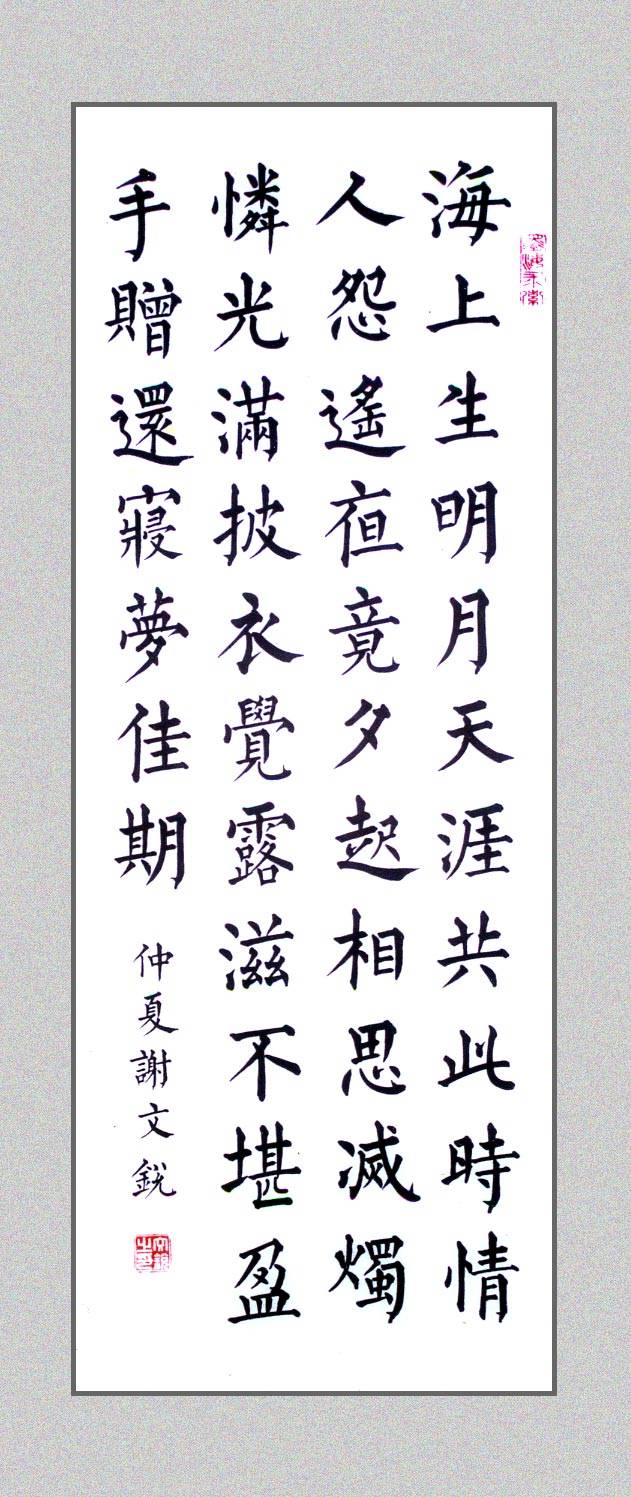 海上生明月天涯共此時情
人怨遙亱竟夕起相思滅燭
憐光滿披衣覺露滋不堪盈
手贈還寢夢佳期
仲夏謝文銳
文銳之印